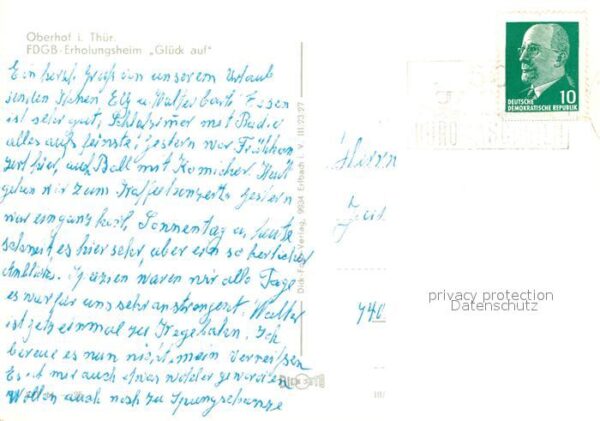 Oberhof i. Thür.
FDGB-Erholungsheim „Glück auf"
Ein herzl. Gruß von unserem Urlaub
senden Ihnen Elly u. Walter Essen
ist sehr gut, Schlafzimer mit Radio
alles aufs feinste, gestern war Frühkon
zert hier, auch Ball mit Komicher. Heut
gehen wir zum Kaffeekonzert. Gestern
war eingang kalt, Sonnentag u. heute
schneit es hier sehr, aber ein so herlicher
Anblick. Spazien waren wir alle Tage
es war für uns sehr anstrengent. Walter
ist jetzt einmal zu Kegelbahn. Ich
bereue es nun nicht, mein verreißen
Es ist mir auch etwas wohler geworden
Wollen auch noch zu Sprungschanze
Verlag, 9934 Erlbach i. V. III/23/97
DEUTSCHE
DEMOKRATISCHE REPUBLIK
10
Herrn
740
privacy protection
Datenschutz